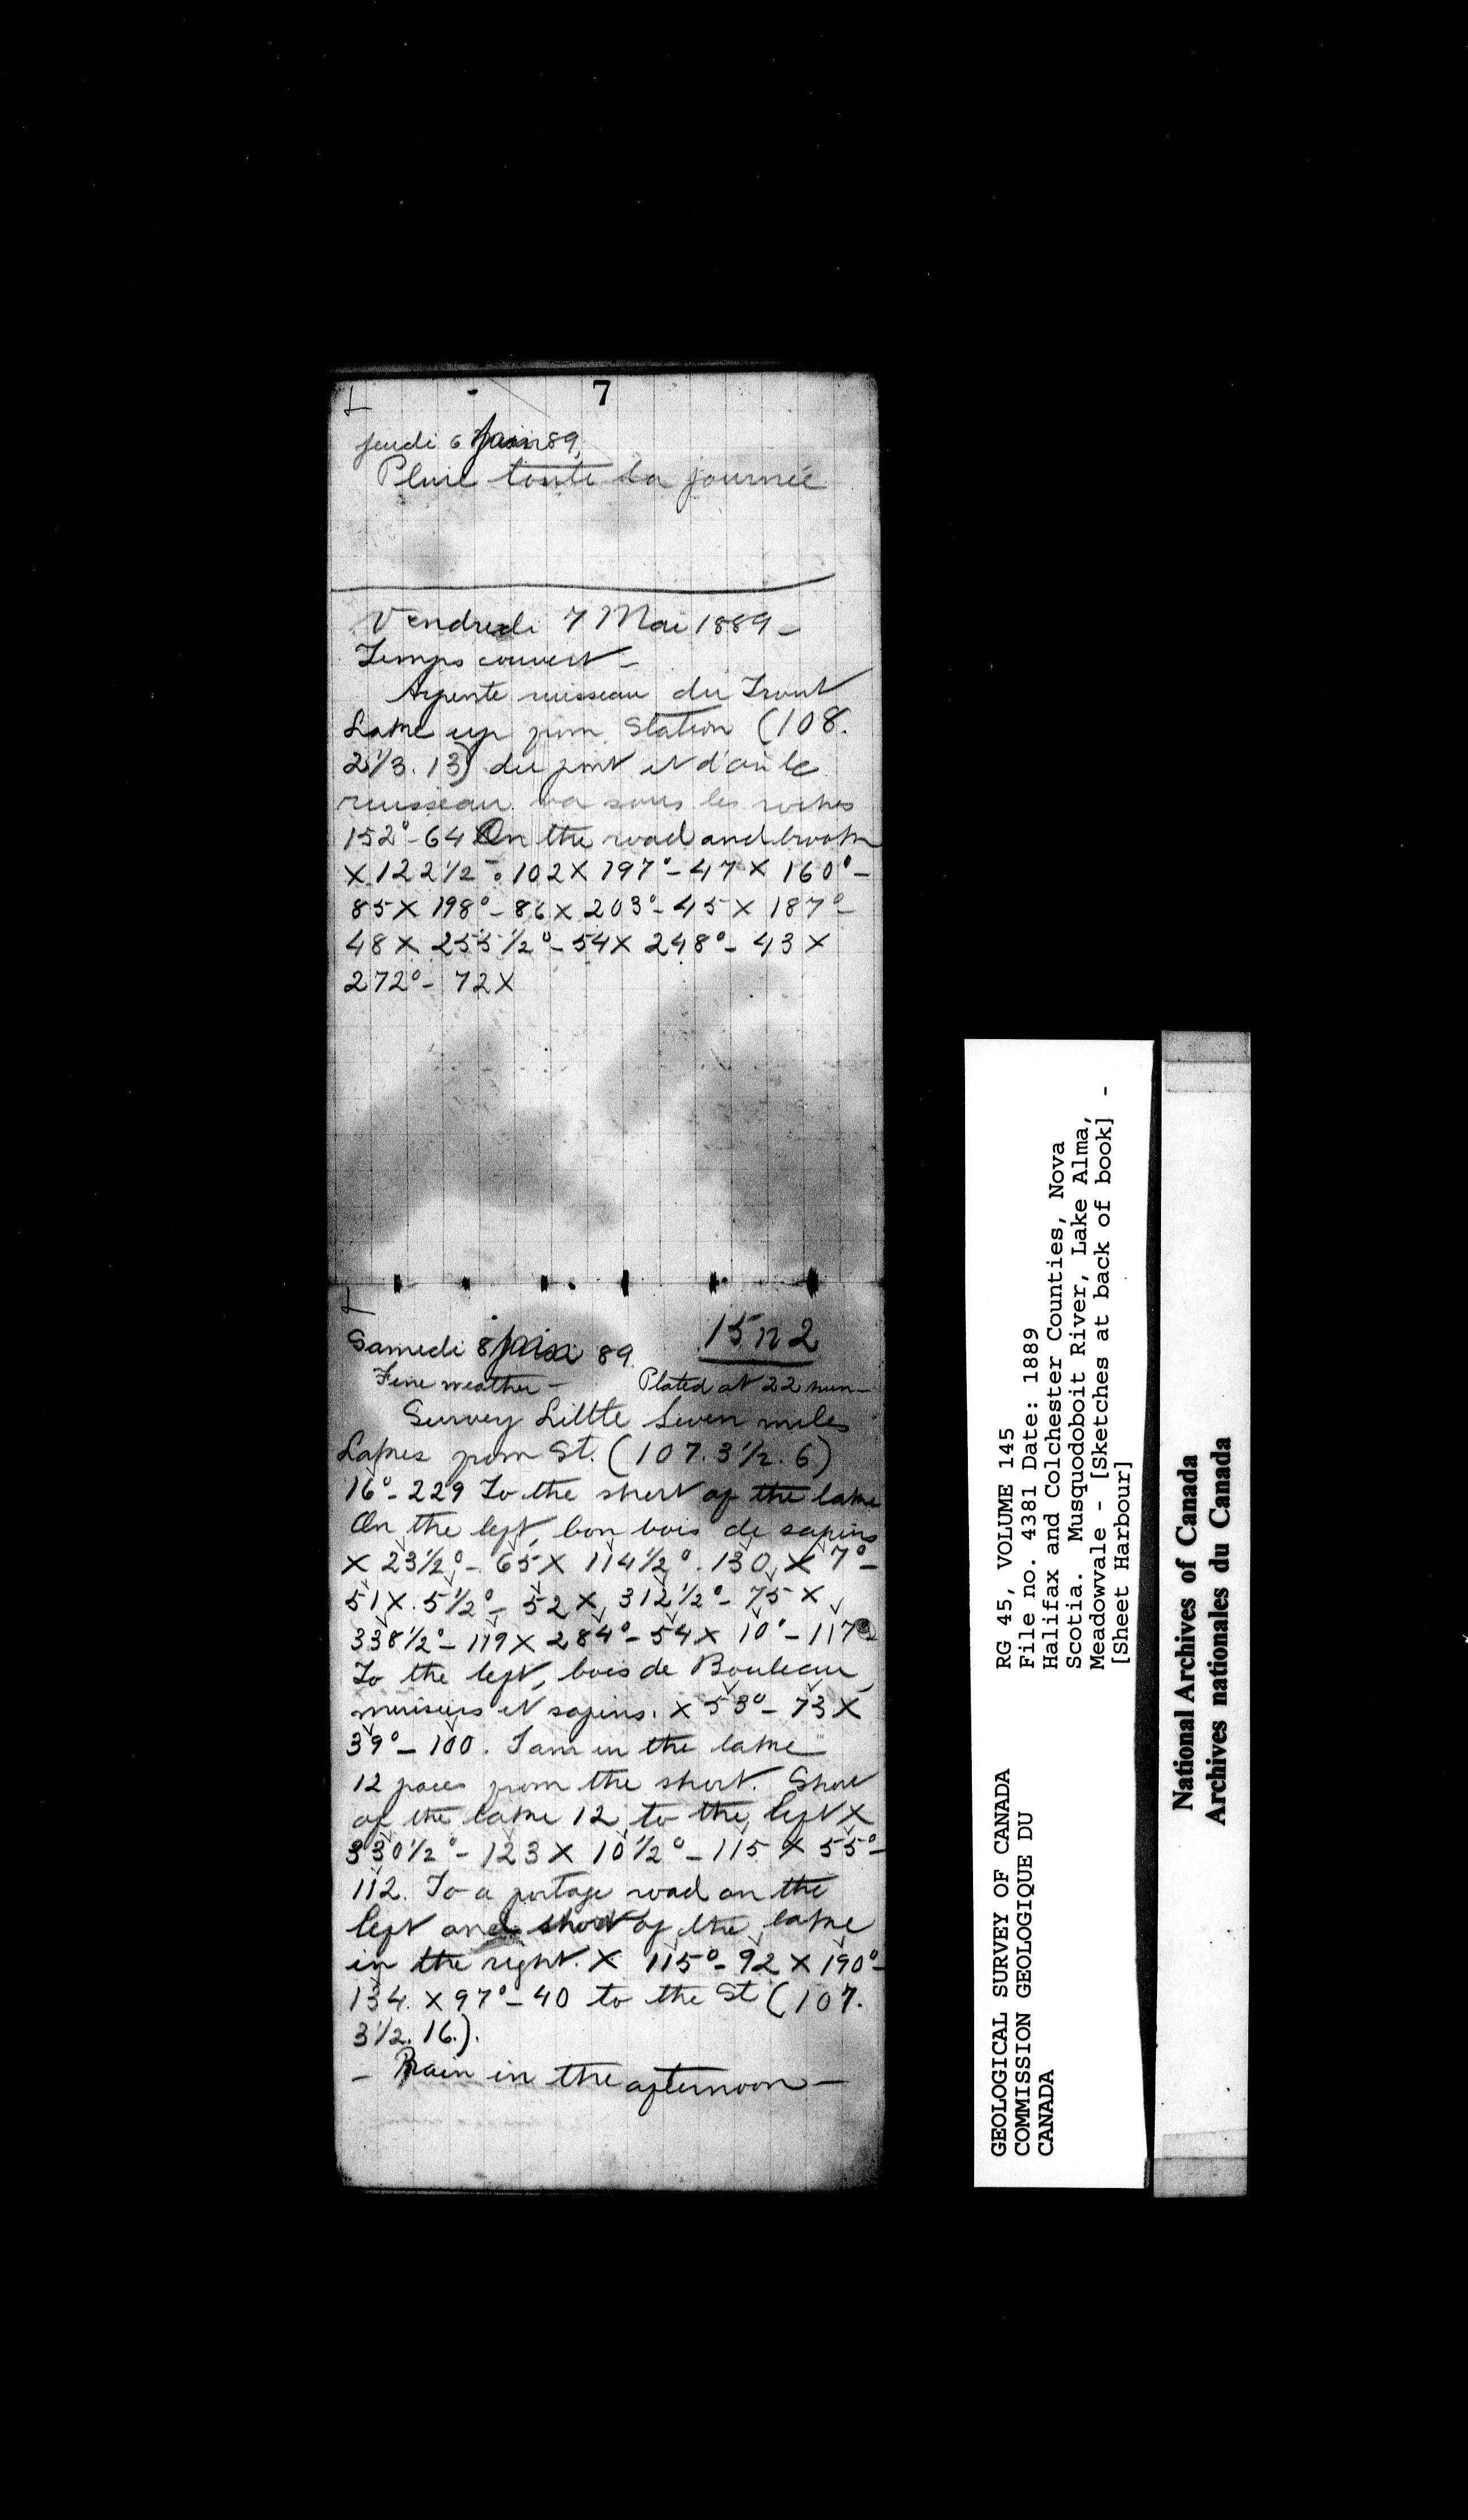 7
Jeudi 6 Juin 89,
Pluie toute la journée
Vendredi 7 Mai 1889 -
Temps couvert -
Arpente ruisseau du Trout
Lake up from Station (108.
2 1/3. 13) du pont et d'où le
ruisseau va sous les roches
152° - 64 On the road and brook
X 122 1/2° - 102 X 197° - 47 X 160° -
85 X 198° - 86 X 203° - 45 X 187° -
48 X 255 1/2° - 54 X 248° - 43 X
272° - 72 X
15 n 2
Samedi 8 Juin 89
Fine weather - Plated at 22 -
Survey Little Seven miles
Lakes from St. (107. 3 1/2. 6)
16° - 229 To the short of the lake
On the left, bon bois de sapins
X 23 1/2° - 65 X 114 1/2° . 130 X 7° -
51 X 5 1/2° - 52 X 312 1/2° - 75 X
338 1/2° - 119 X 284° - 54 X 10° - 117
To the left, bois de Bouleau,
merisiers et sapins. X 53° - 73 X
39° - 100. I am in the lake
12 paces from the short. Shore
of the lake 12 to the left X
330 1/2° - 123 X 10 1/2° - 115 X 55° -
112. To a portage road on the
left and short of the lake
in the right. X 115° - 92 X 190° -
134 X 97° - 40 to the St (107.
3 1/2. 16.).
- Rain in the afternoon -
GEOLOGICAL SURVEY OF CANADA
COMMISSION GEOLOGIQUE DU
CANADA
RG 45, VOLUME 145
File no. 4381 Date: 1889
Halifax and Colchester Counties, Nova
Scotia. Musquodoboit River, Lake Alma,
Meadowvale - [Sketches at back of book] -
[Sheet Harbour]
National Archives of Canada
Archives nationales du Canada